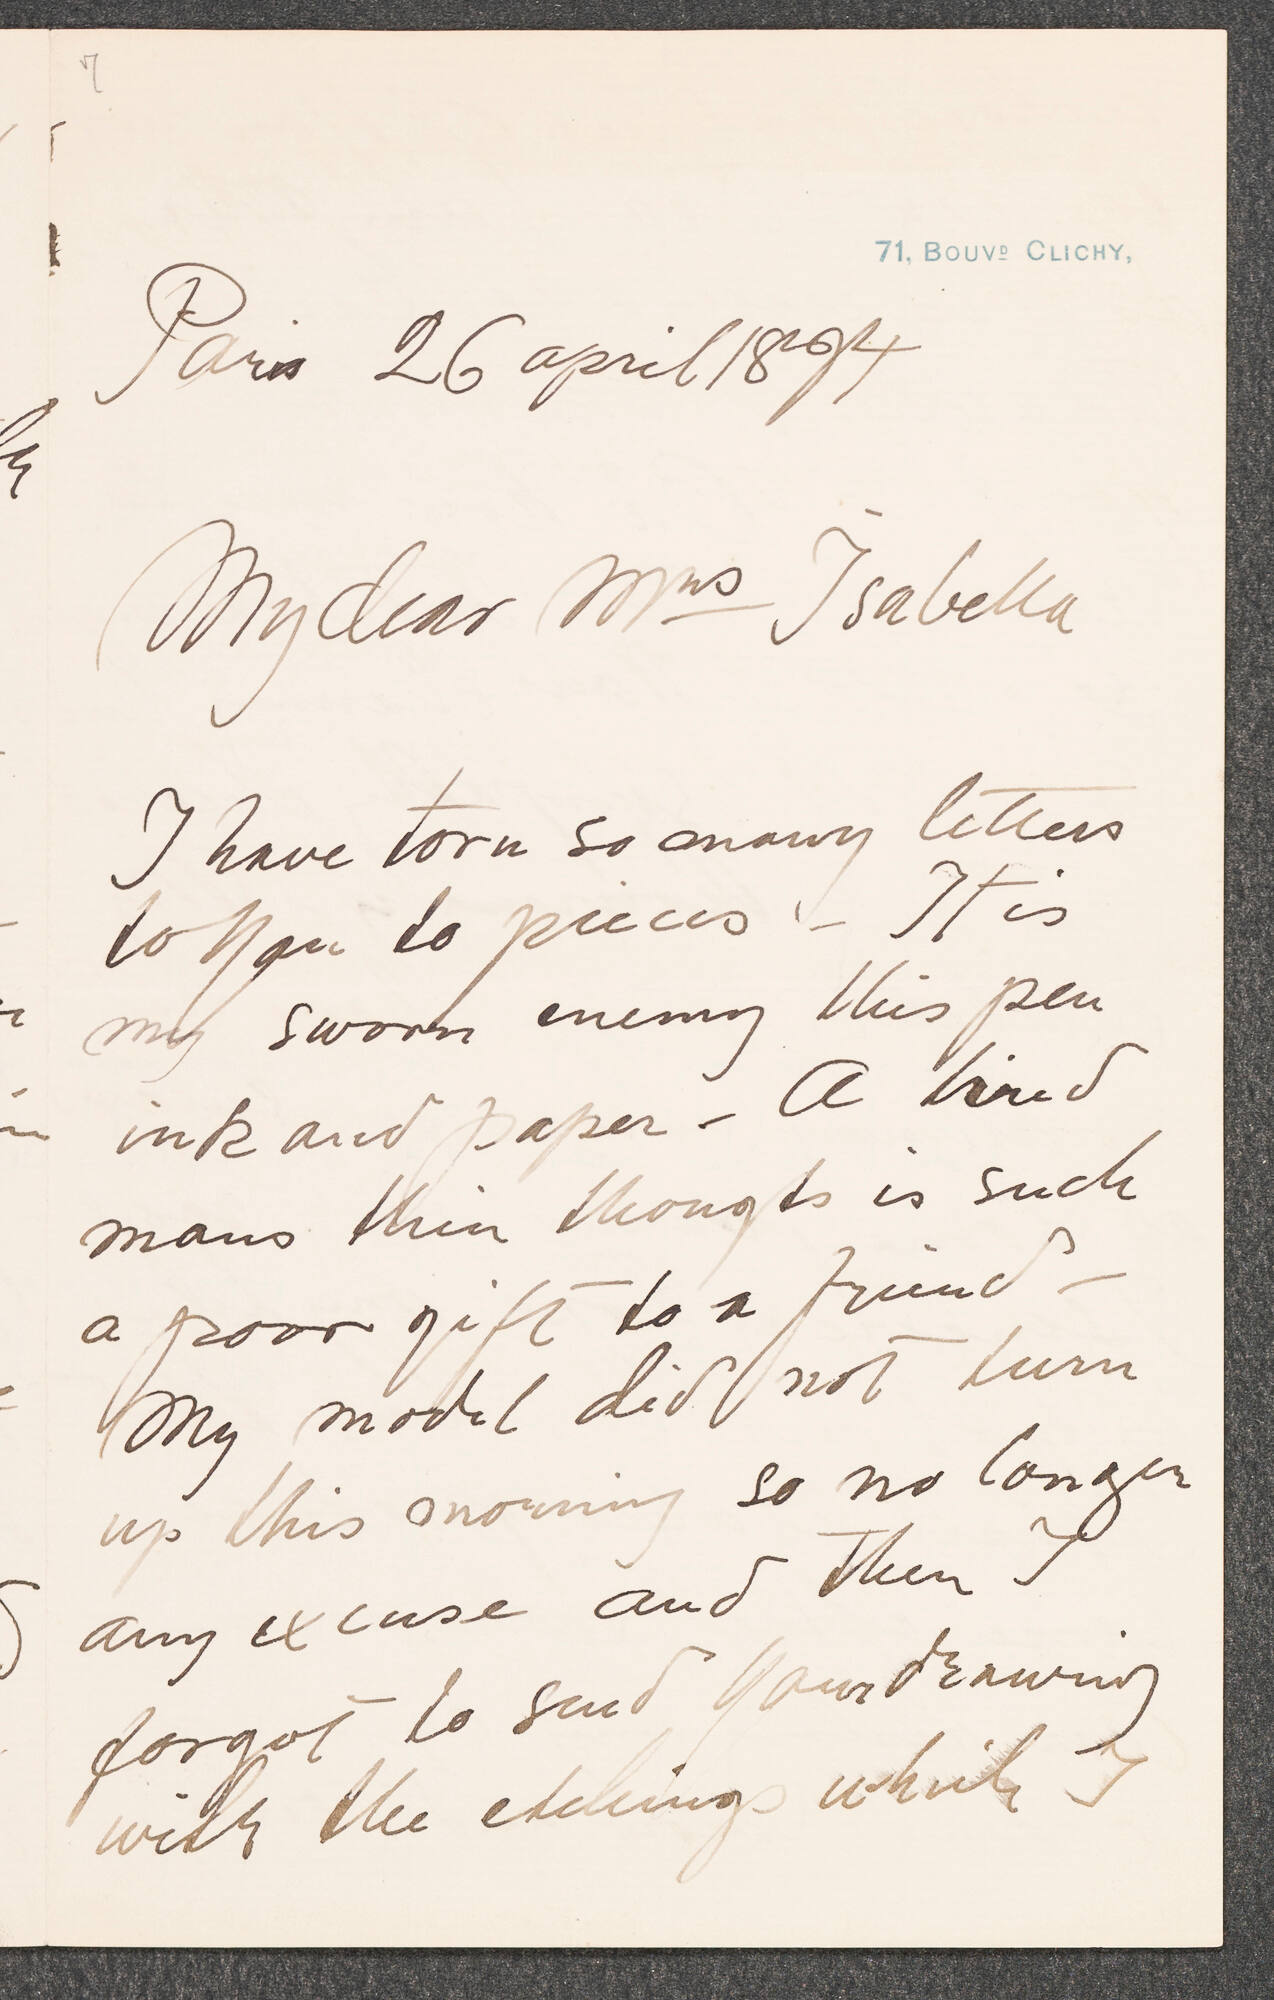 7
71, BOUVD CLICHY,
Paris 26 april 1894
My dear Mrs Isabella
I have torn so many letters
to you to pieces - It is
my sworn enemy this pen
ink and paper - A tired
mans thin thougts is such
a poor gift to a friend -
My model did not turn
up this morning so no longer
any excuse and then I
forgot to send your drawing
with the etchings which I